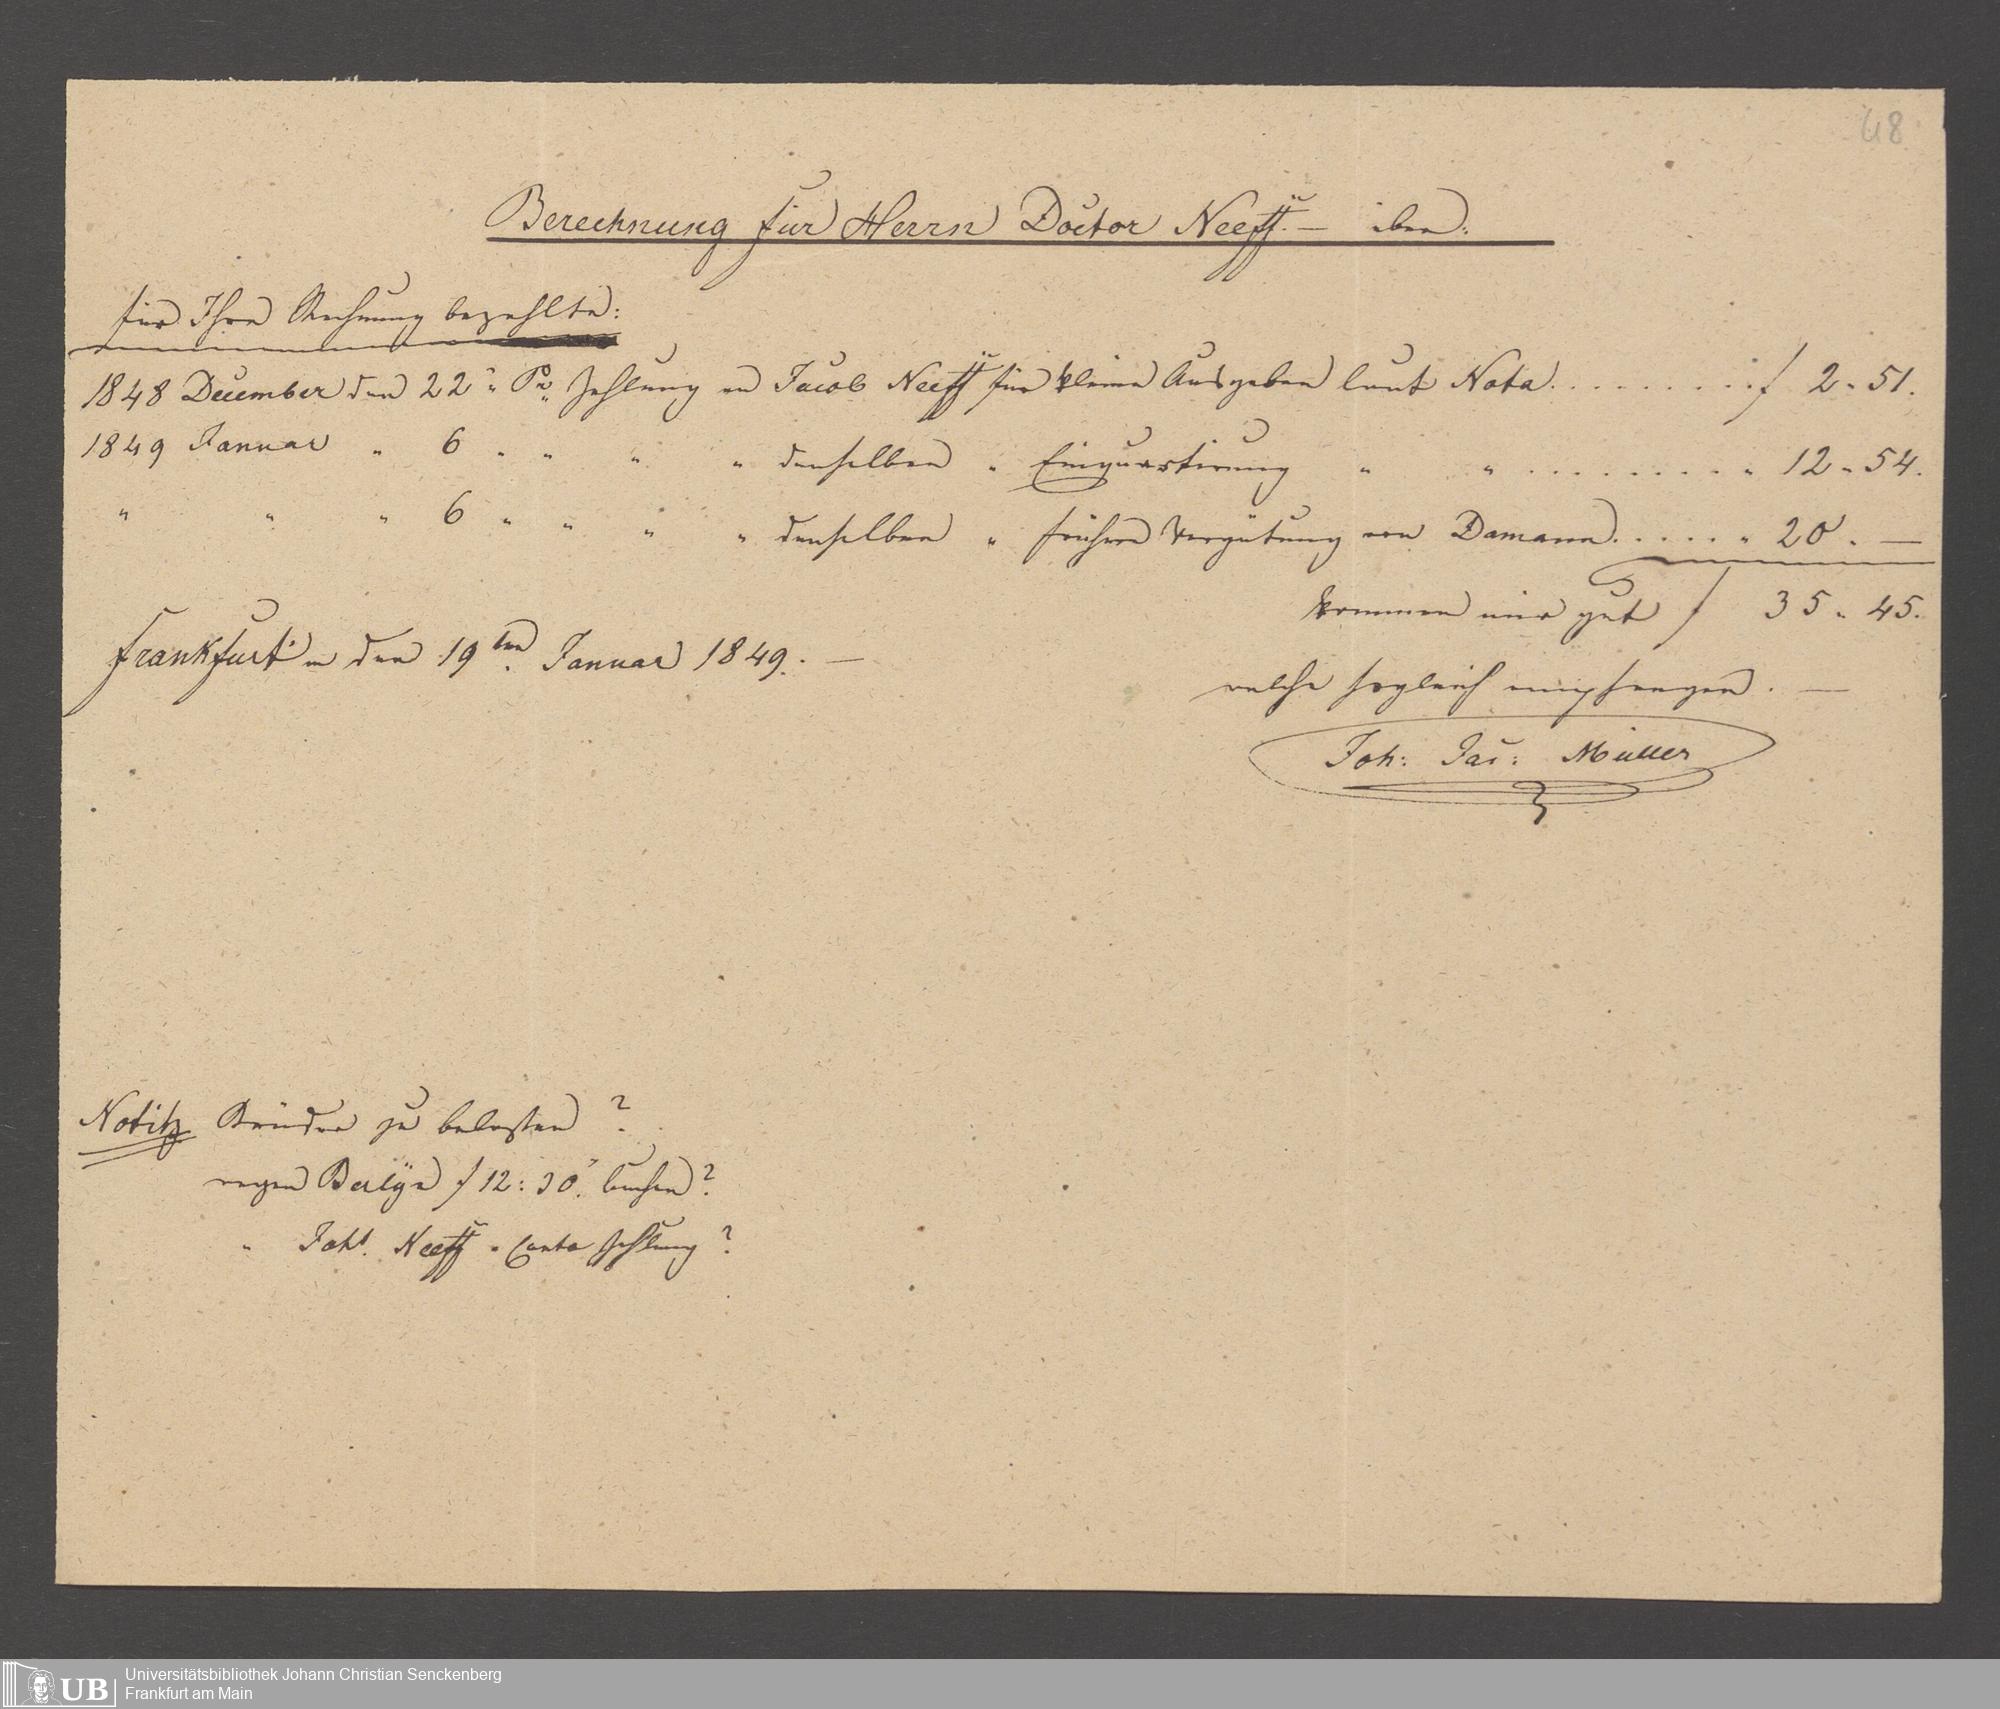 48
Berechnung für Herrn Doctor Neeff. — über:
für Ihre Rechnung bezahlte:
1848 December den 22 " Pr. Zahlung an Jacob Neeff für kleine Ausgaben laut Nota . . . . . . . . . f 2 " 51.
1849 Januar " 6 " " " " denselben " Einquartirung " " . . . . . . . . . " 12 " 54.
" " " 6 " " " " denselben " frühere Vergütung von Damann . . . . . " 20 . —
kommen mir gut f 35 " 45.
Frankfurt a/m den 19ten Januar 1849. —
welche sogleich empfangen. —
Joh: Jac: Müller
Notitz zu belasten ?
wegen f 12: 30. buchen?
" Neeff " Conto Zahlung ?
Universitätsbibliothek Johann Christian Senckenberg
UB Frankfurt am Main